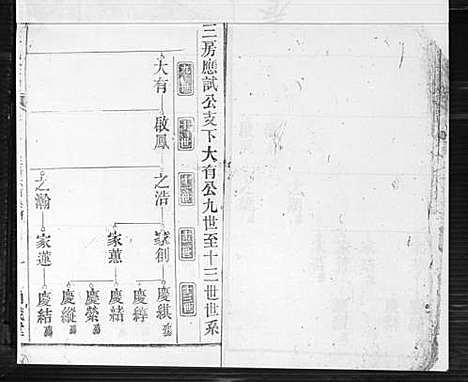 三房應試公支下大有公九世至十三世世系
九世
十世
十一世
十二世
十三世
大有
啟鳳
之浩
家創
慶緱
慶綍
家蕙
慶緒
慶縈
慶縱
之瀚
家蓮
慶結